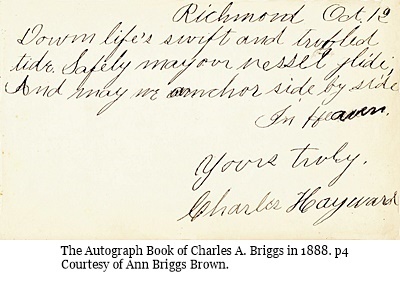 Richmond Oct. 12
Down life's swift and troubled
tide. Safely may our vessel glide,
And may we anchor side by side
In Heaven.
Yours truly.
Charles Hayward
The Autograph Book of Charles A. Briggs in 1888. p4
Courtesy of Ann Briggs Brown.